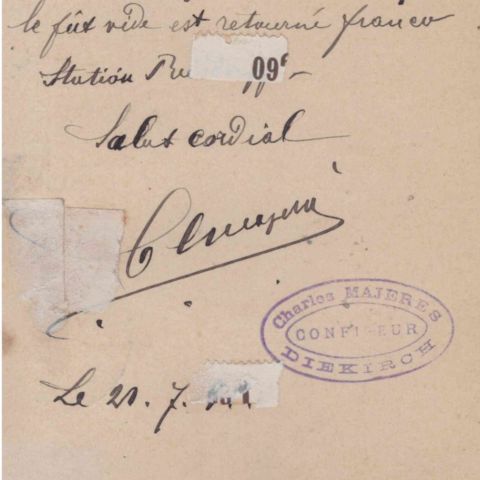 le fût vide est retourné franco
Station
09
Salut cordial
Charles MAJERES
CONFISEUR
DIEKIRCH
Le 21. 7.